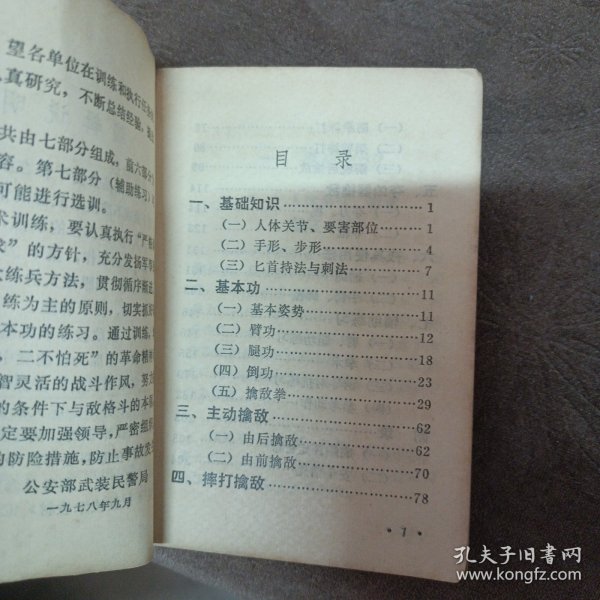 望各单位在训练和执行任务
真研究，不断总结经验，
共由七部分组成，前六部分
容。第七部分（辅助练习）
可能进行选训。
术训练，要认真执行“严格
求”的方针，充分发扬军事
练兵方法，贯彻循序渐进
练为主的原则，切实抓
本功的练习。通过训练，
，二不怕死”的革命精神
智灵活的战斗作风，努力
的条件下与敌格斗的本领
定要加强领导，严密组织
的防险措施，防止事故发
公安部武装民警局
一九七八年九月
目 录
一、基础知识……………………1
（一）人体关节、要害部位……………1
（二）手形、步形……………………4
（三）匕首持法与刺法………………7
二、基本功……………………11
（一）基本姿势……………………11
（二）臂功……………………12
（三）腿功……………………18
（四）倒功……………………23
（五）擒敌拳……………………29
三、主动擒敌……………………62
（一）由后擒敌……………………62
（二）由前擒敌……………………70
四、摔打擒敌……………………78
·1·
孔夫子旧书网
www.kongfz.com